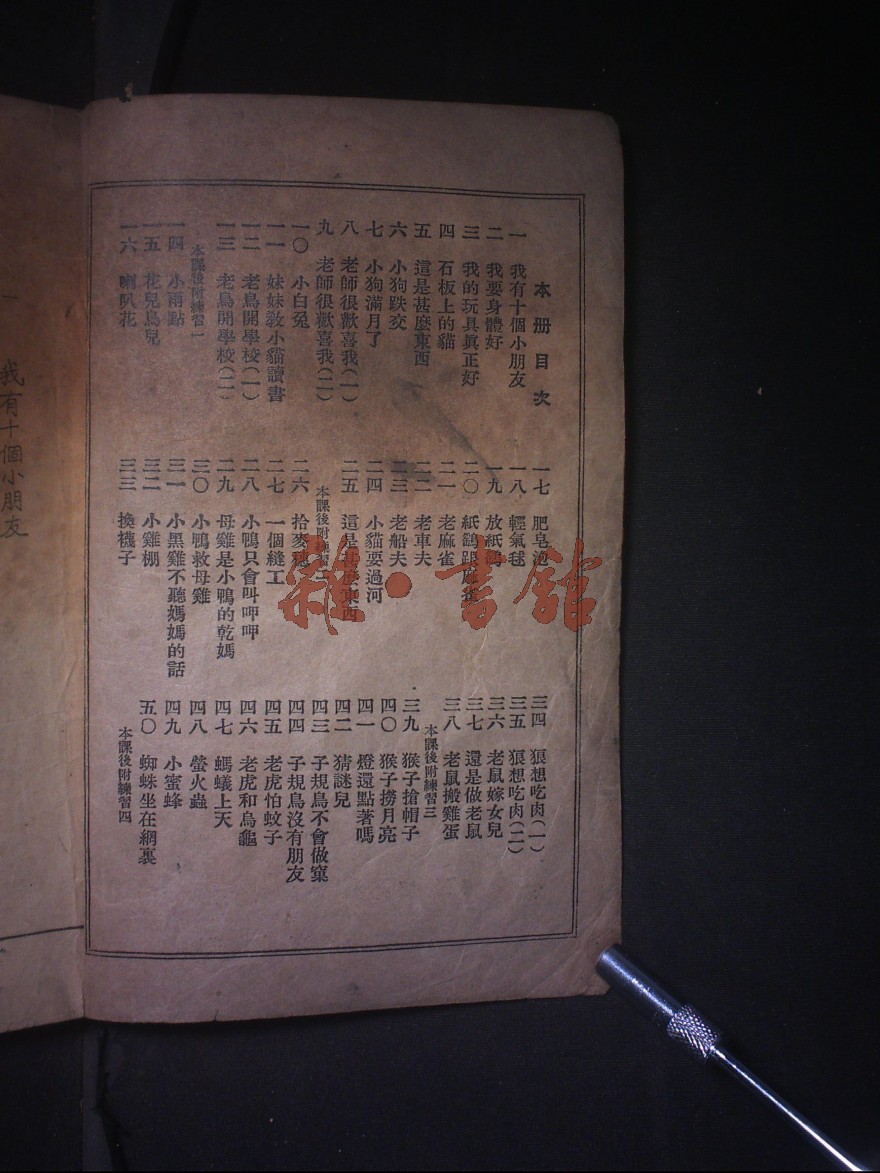 本册目次
一 我有十個小朋友
二 我要身體好
三 我的玩具眞正好
四 石板上的貓
五 這是甚麼東西
六 小狗跌交
七 小狗滿月了
八 老師很歡喜我(一)
九 老師很歡喜我(二)
一〇 小白兔
一一 妹妹敎小貓讀書
一二 老鳥開學校(一)
一三 老鳥開學校(二)
本課後附練習一
一四 小雨點
一五 花兒鳥兒
一六 喇叭花
一七 肥皂泡
一八 輕氣毬
一九 放紙鷂
二〇 紙鷂跟麻雀
二一 老麻雀
二二 老車夫
二三 老船夫
二四 小貓要過河
二五 這是甚麼東西
本課後附練習二
二六 拾麥穗
二七 一個縫工
二八 小鴨只會叫呷呷
二九 母雞是小鴨的乾媽
三〇 小鴨救母雞
三一 小黑雞不聽媽媽的話
三二 小雞棚
三三 換襪子
三四 狼想吃肉(一)
三五 狼想吃肉(二)
三六 老鼠嫁女兒
三七 還是做老鼠
三八 老鼠搬雞蛋
本課後附練習三
三九 猴子搶帽子
四〇 猴子撈月亮
四一 燈還點著嗎
四二 猜謎兒
四三 子規鳥不會做窠
四四 子規鳥沒有朋友
四五 老虎怕蚊子
四六 老虎和烏龜
四七 螞蟻上天
四八 螢火蟲
四九 小蜜蜂
五〇 蜘蛛坐在網裏
本課後附練習四
一 我有十個小朋友
雜·書館